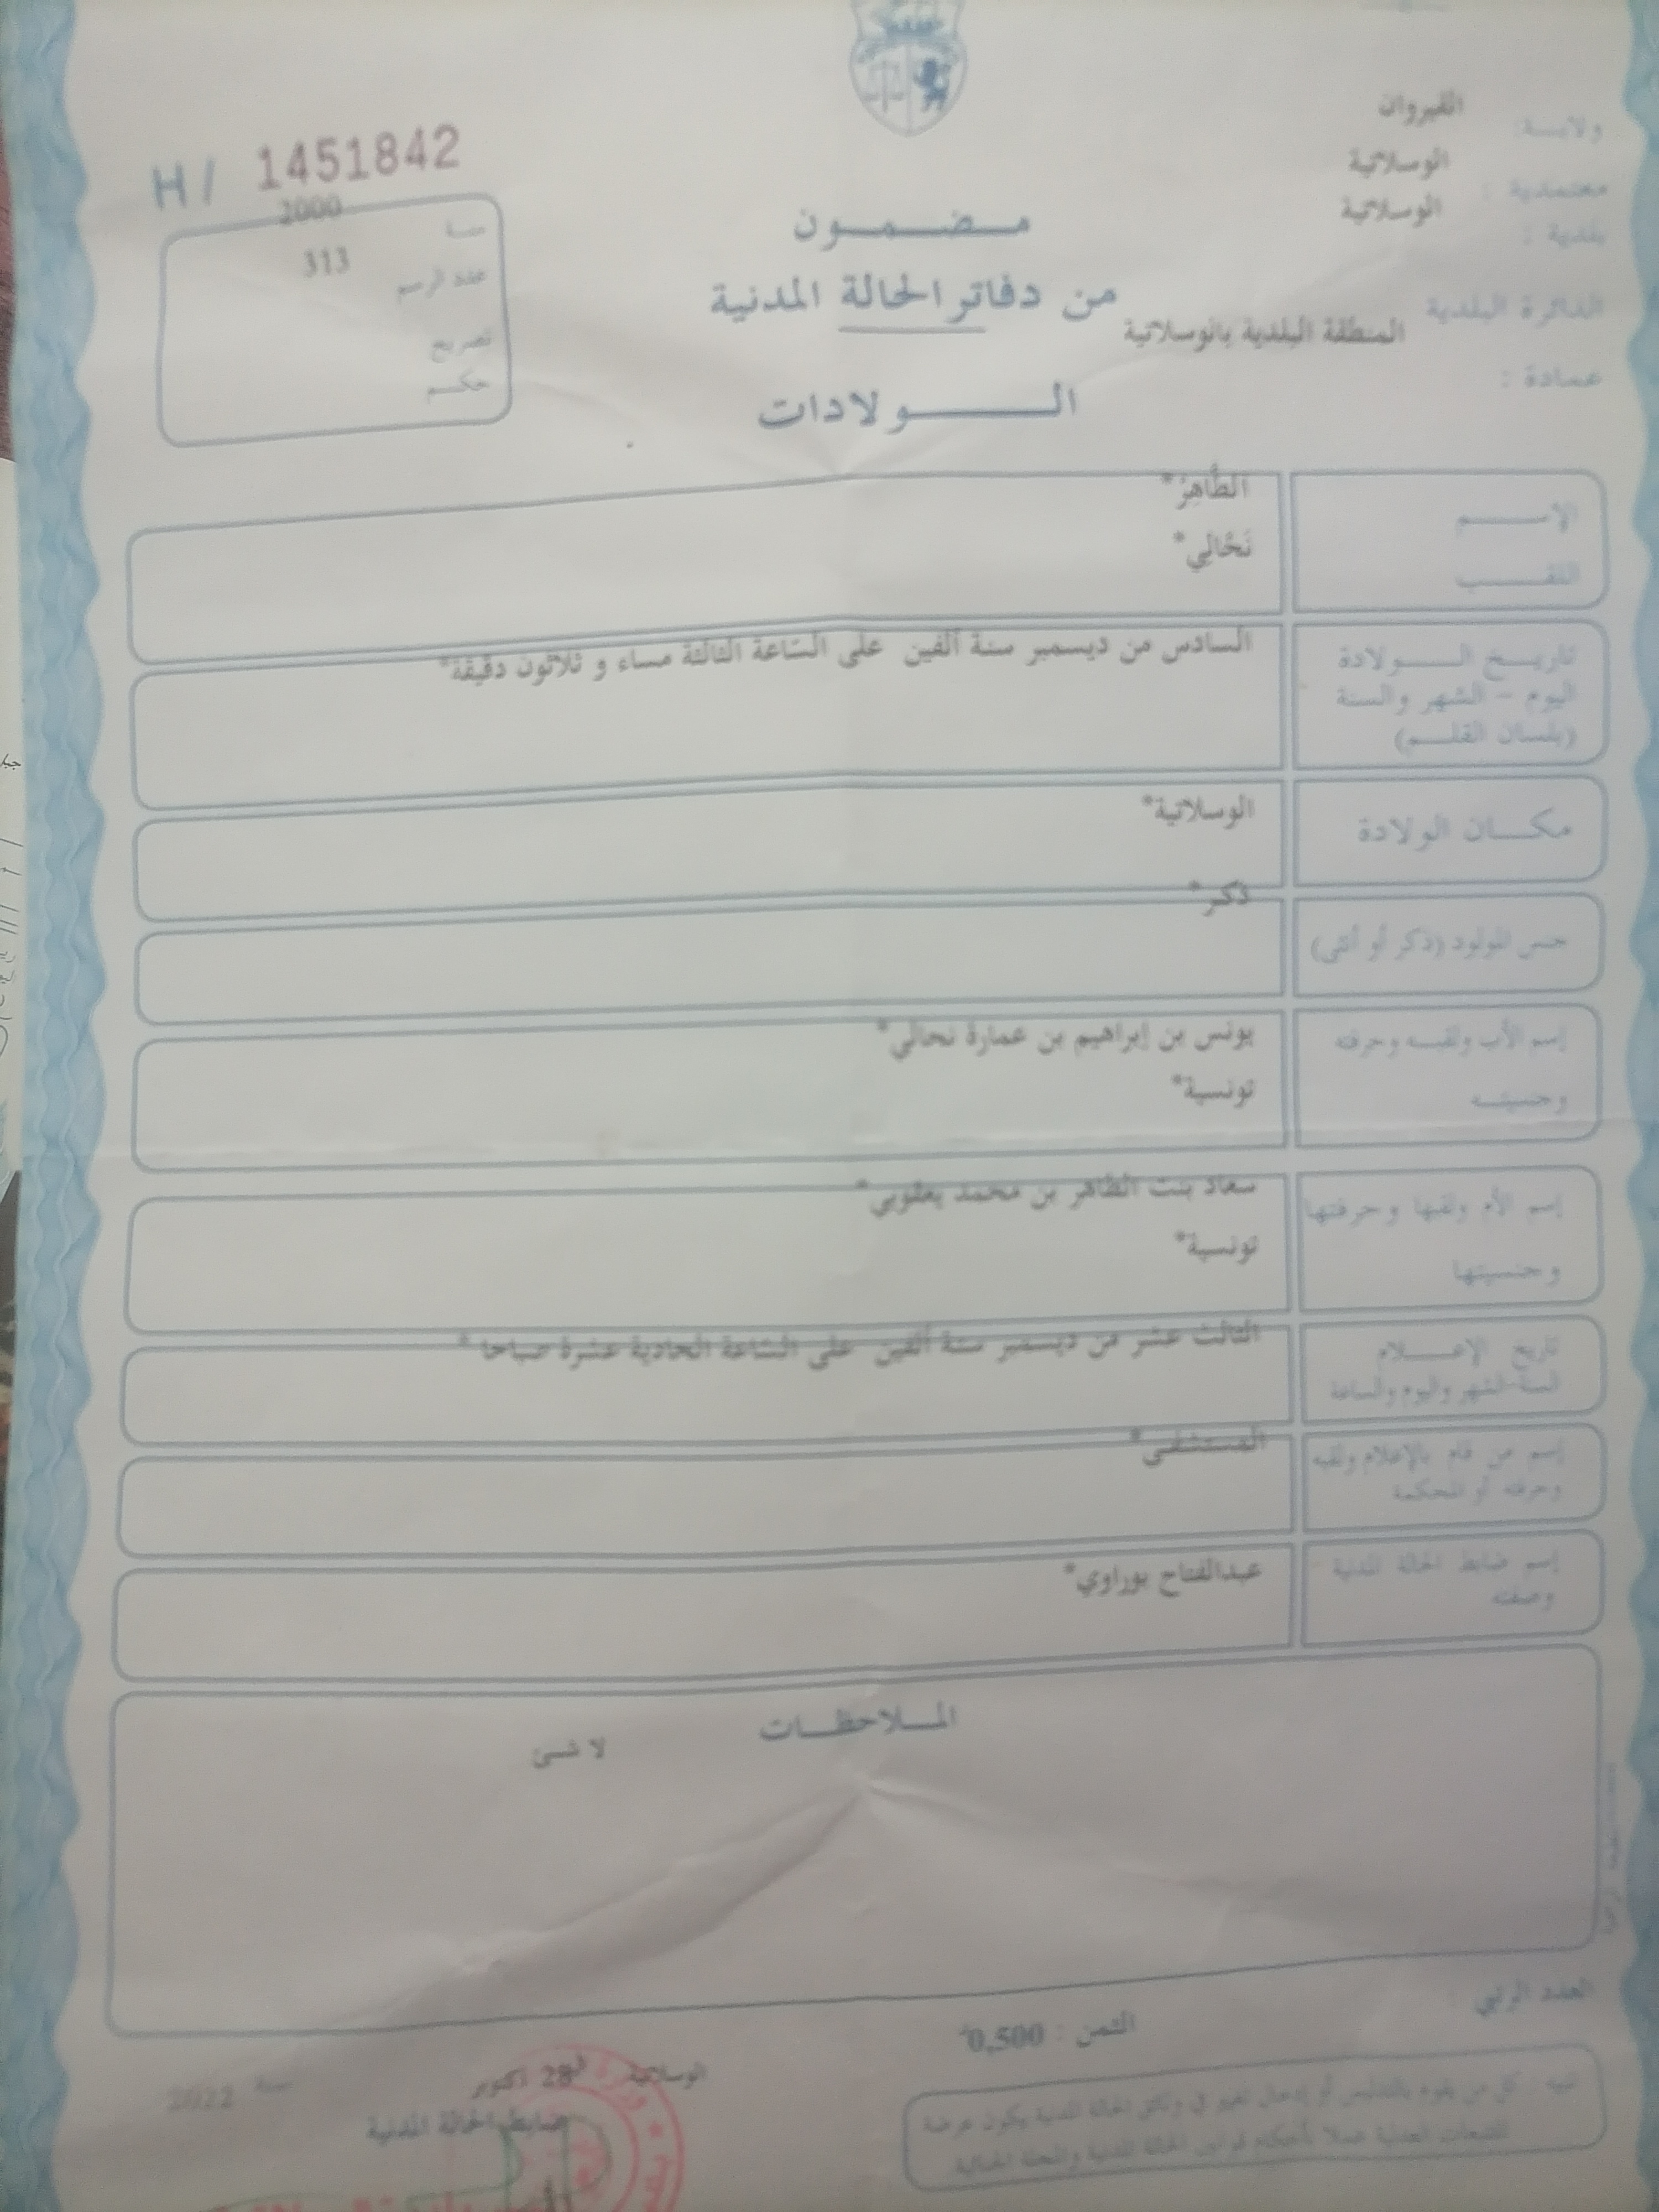 ولايـــة: القيروان
معتمدية : الوسلاتية
بلدية : الوسلاتية
الدائرة البلدية المنطقة البلدية بالوسلاتية
عمادة :
H / 1451842
سنـة 2000
عدد الرسم 313
تصريح
حكـم
مـضـمـون
من دفاتر الحالة المدنية
الـــولادات
الإســـم الطَّاهِرْ*
اللقـــب نَحَّالِي*
تاريـخ الـــولادة السادس من ديسمبر سنة ألفين على السّاعة الثالثة مساء و ثلاثون دقيقة*
اليوم - الشهر والسنة
(بلسان القلـم)
مكـان الولادة الوسلاتية*
جنس المولود (ذكر أو أنثى) ذكر*
إسم الأب ولقبـه وحرفته يونس بن إبراهيم بن عمارة نحالي*
وجنسيتـه تونسية*
إسم الأم ولقبها وحرفتها سعاد بنت الطاهر بن محمد يعقوبي*
وجنسيتها تونسية*
تاريخ الإعـــلام الثالث عشر من ديسمبر سنة ألفين على السّاعة الحادية عشرة صباحا *
السنة-الشهر واليوم والساعة
إسم من قام بالإعلام ولقبه المستشفى*
وحرفته أو المحكمة
إسم ضابط الحالة المدنية عبدالفتاح بوراوي*
وصفته
المـلاحظـات
لا شئ
العدد الرتبي :
الثمن : 0,500
تنبيه : كل من يقوم بالتدليس أو إدخال تغيير في وثائق الحالة المدنية يكون عرضة
للتتبعات العدلية عملا بأحكام قوانين الحالة المدنية والمجلة الجنائية
الوسلاتية في 28 أكتوبر سنة 2022
ضابط الحالة المدنية